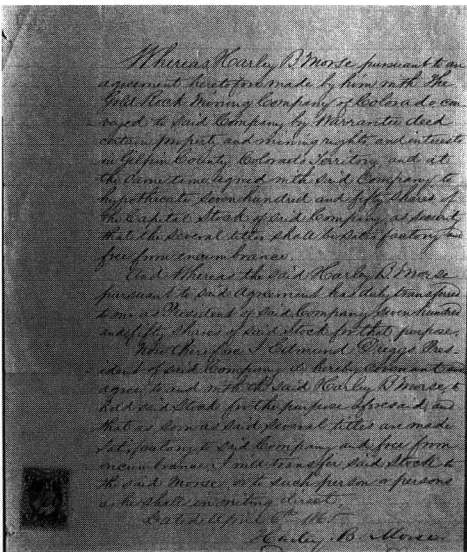 Whereas Harley B Morse pursuant to an
agreement heretofore made by him with The
Goat Rock Mining Company of Colorado con-
veyed to said Company by Warrantee deed
certain property and mining rights and interests
in Gilpin County Colorado Territory and at
the same time agreed with said Company to
hypothecate seven hundred and fifty shares of
the Capital Stock of said Company as security
that the several titles shall be satisfactory and
free from encumbrance.
And Whereas the said Harley B. Morse
pursuant to said Agreement has duly transferred
to me as President of said Company seven hundred
and fifty shares of said Stock for that purpose.
Now therefore I Edmund Driggs Pres-
ident of said Company do hereby Covenant and
agree to and with the said Harley B Morse, to
hold said Stock for the purpose aforesaid, and
that as soon as said several titles are made
satisfactory to said Company and free from
incumbrance, I will transfer said Stock to
the said Morse, or to such person or persons
as he shall in writing direct.
Dated April 6th 1865
Harley B. Morse